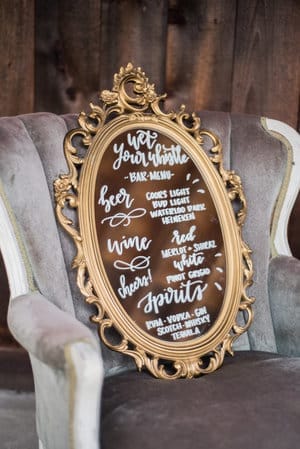 wet
your whistle
-BAR·MENU-
beer
COORS LIGHT
BUD LIGHT
WATERLOO DARK
HEINEKEN
wine
red
MERLOT · SHIRAZ
white
PINOT GRIGIO
cheers!
Spirits
RUM · VODKA · GIN
SCOTCH · WHISKY
TEQUILA